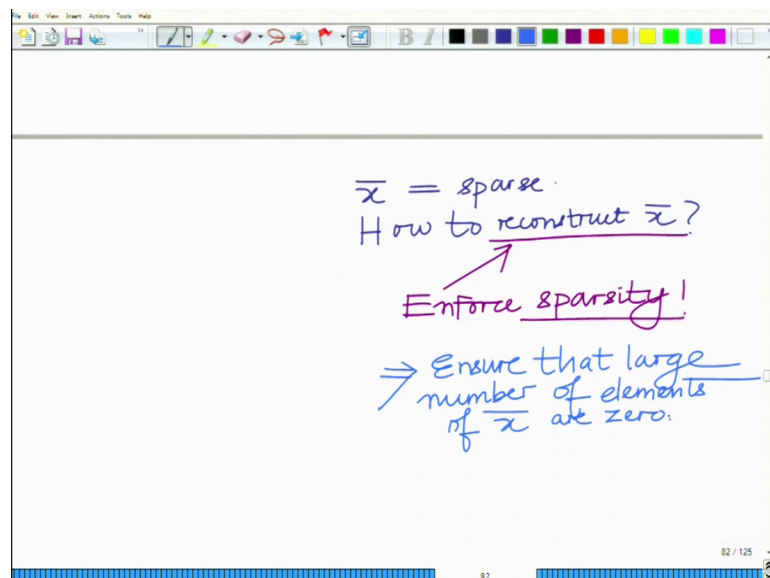 File Edit View Insert Actions Tools Help
B I
x̄ = sparse.
How to reconstruct x̄?
Enforce sparsity!
⇒ Ensure that large
number of elements
of x̄ are zero.
82 / 125
82